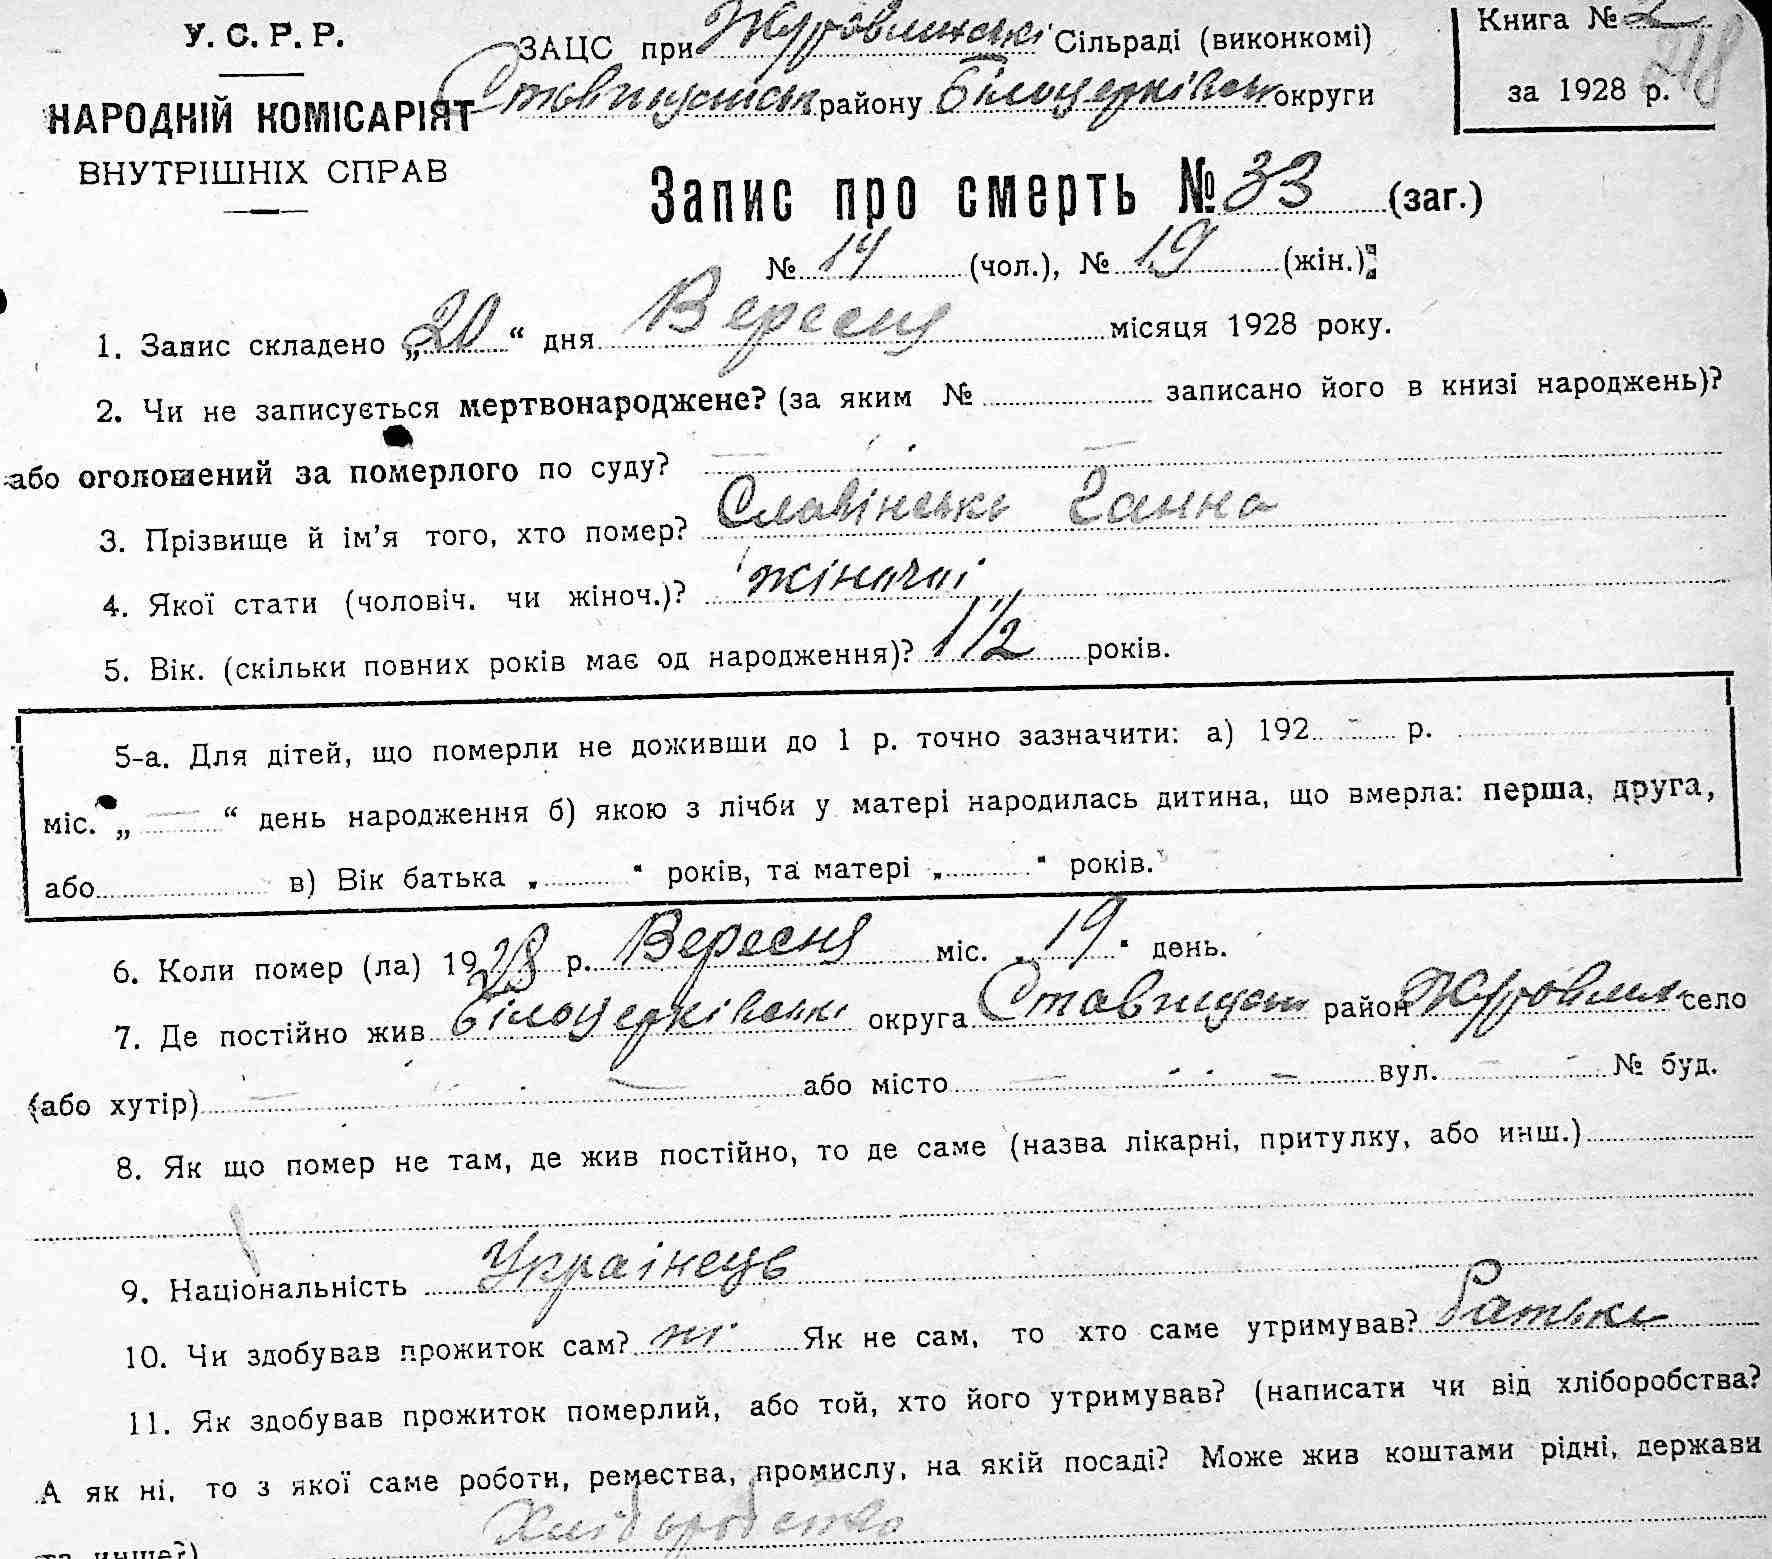 У. С. Р. Р.
НАРОДНІЙ КОМІСАРІЯТ
ВНУТРІШНІХ СПРАВ
ЗАЦС при Журовлинські Сільраді (виконкомі)
Ставищанськ району Білоцерківськ округи
Книга № 2
за 1928 р.
Запис про смерть № 33 (заг.)
№ 14 (чол.), № 19 (жін.):
1. Запис складено „20“ дня Вересня місяця 1928 року.
2. Чи не записується мертвонароджене? (за яким № записано його в книзі народжень)?
або оголошений за померлого по суду?
3. Прізвище й ім'я того, хто помер? Славінська Ганна
4. Якої стати (чоловіч. чи жіноч.)? жіночої
5. Вік. (скільки повних років має од народження)? 1 1/2 років.
5-а. Для дітей, що померли не доживши до 1 р. точно зазначити: а) 192 - р.
міс. „ — “ день народження б) якою з лічби у матері народилась дитина, що вмерла: перша, друга,
або в) Вік батька „ “ років, та матері „ “ років.
6. Коли помер (ла) 1928 р. Вересня міс. 19 “ день.
7. Де постійно жив Білоцерківські округа Ставищан район село
(або хутір) — або місто — вул. — № буд.
8. Як що помер не там, де жив постійно, то де саме (назва лікарні, притулку, або инш.)
9. Національність Українець
10. Чи здобував прожиток сам? ні Як не сам, то хто саме утримував? Батьки
11. Як здобував прожиток померлий, або той, хто його утримував? (написати чи від хліборобства?
А як ні, то з якої саме роботи, ремества, промислу, на якій посаді? Може жив коштами рідні, держави
та инше?) Хліборобство